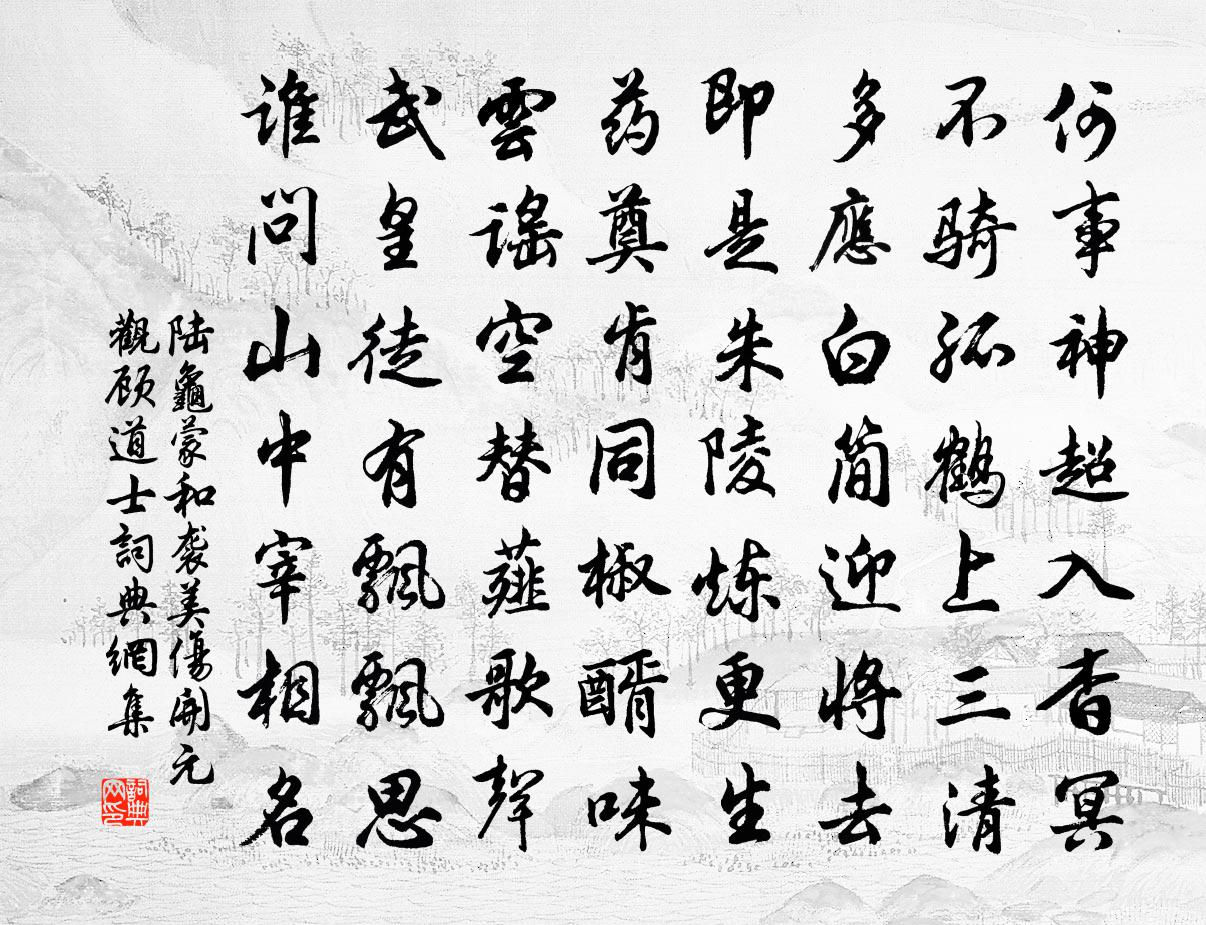 何事神超入杳冥
不骑孤鹤上三清
多應白简迎将去
即是朱陵炼更生
药奠肯同椒醑味
雲謠空替薤歌聲
武皇徒有飄飄思
谁问山中宰相名
陆龜蒙和袭美傷開元
觀顾道士詞典網集
詞典
网印